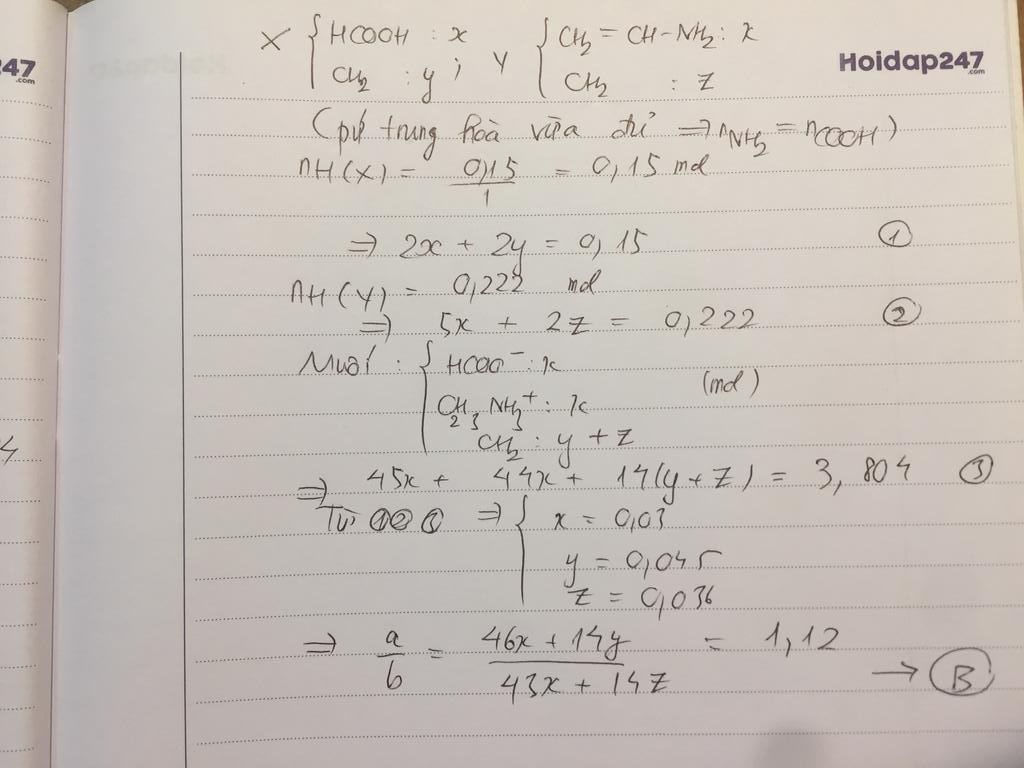 47 .com
Hoidap247 .com
X { HCOOH : x ; Y { CH2 = CH-NH2 : x
CH2 : y CH2 : z
(pứ trung hoà vừa đủ => nNH2 = nCOOH)
nH(X) = 0,15/1 = 0,15 mol
=> 2x + 2y = 0,15 ①
nH(Y) = 0,222 mol
=> 5x + 2z = 0,222 ②
Muối : { HCOO⁻ : x
(mol)
CH2 3 NH3⁺ : x
CH2 : y + z
=> 45x + 44x + 14(y+z) = 3,804 ③
Từ ①② => { x = 0,03
y = 0,045
z = 0,036
=> a/b = (46x + 14y)/(43x + 14z) = 1,12
→ B